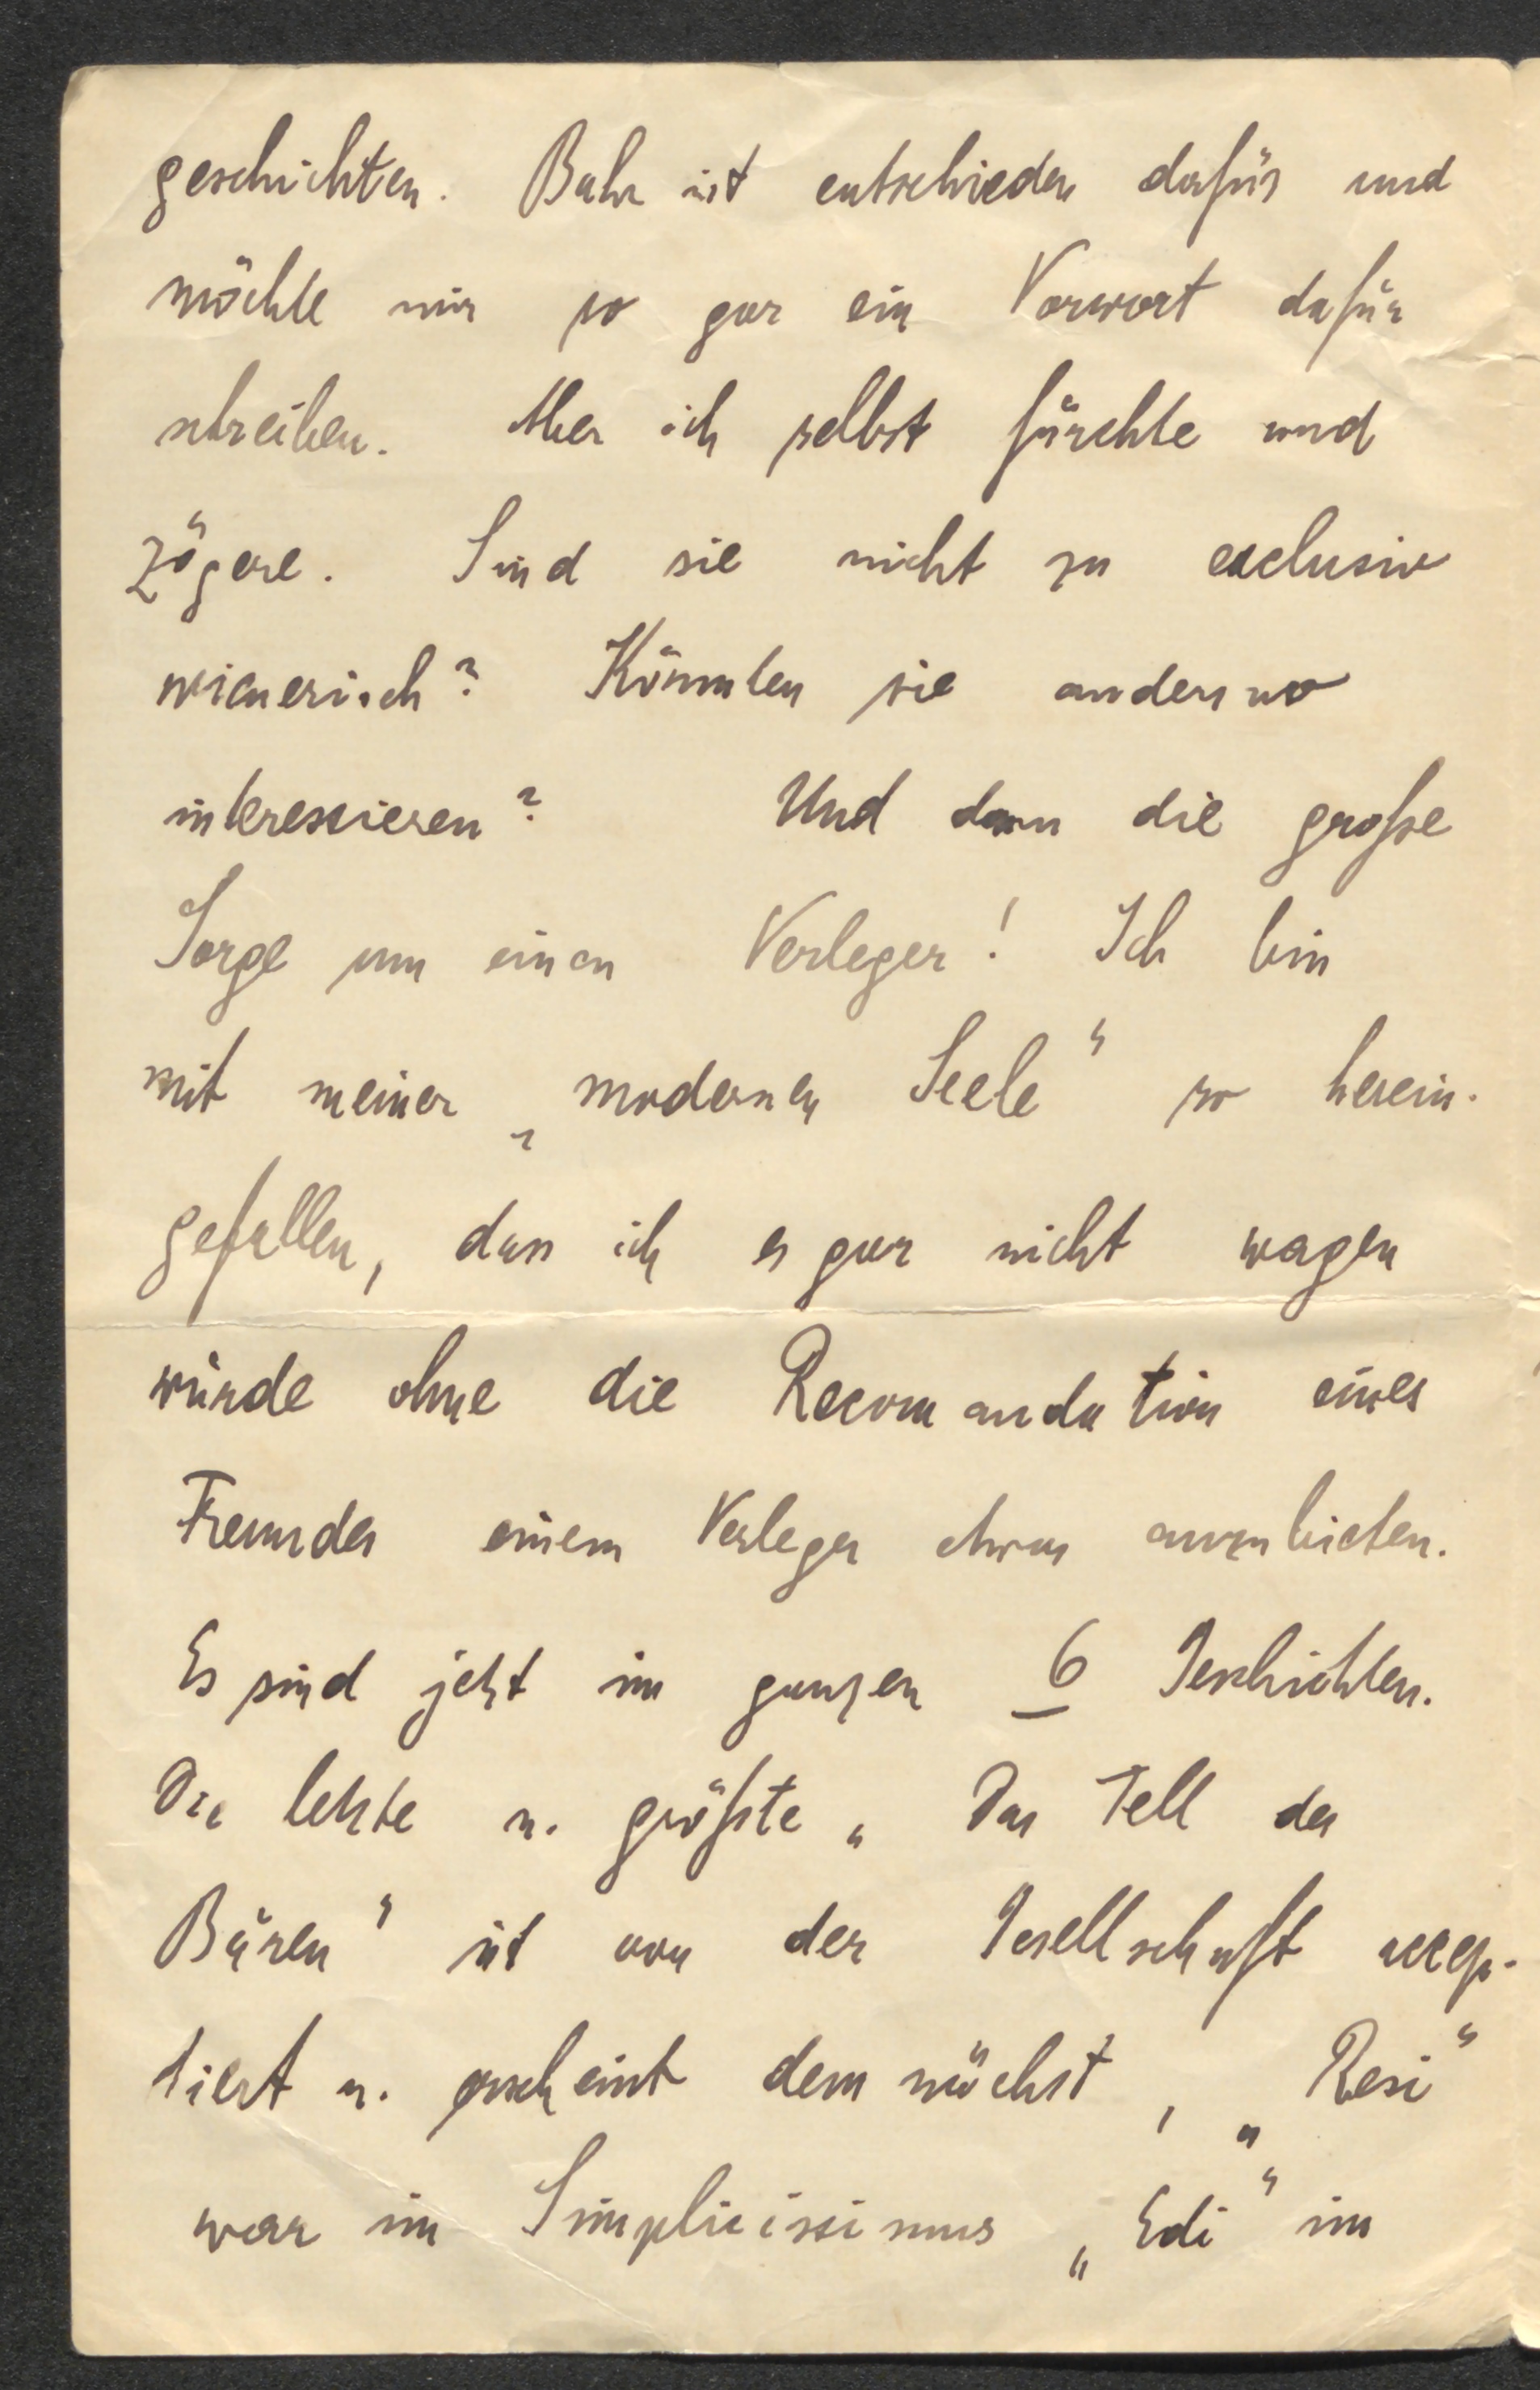 geschichten. Bahr ist entschieden dafür und
möchte mir so gar ein Vorwort dafür
schreiben. Aber ich selbst fürchte und
zögere. Sind sie nicht zu exclusiv
wienerisch? Könnten sie anderswo
interessieren? Und dann die große
Sorge um einen Verleger! Ich bin
mit meiner „modernen Seele“ so herein-
gefallen, dass ich es gar nicht wagen
würde ohne die Recomandation eines
Freundes einem Verleger etwas anzubieten.
Es sind jetzt im ganzen 6 Geschichten.
Die letzte u. größte „Das Fell des
Bären“ ist von der Gesellschaft accep-
tiert u. erscheint demnächst, „Resi“
war im Simplicissimus „Edi“ im